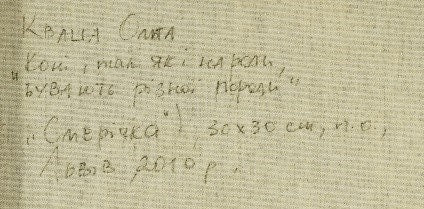 Кваша Ольга
"Коти, так як і народи,
бувають різної породи"
"Смерічка", 30x30 см, п.о.,
Львів, 2010 р.